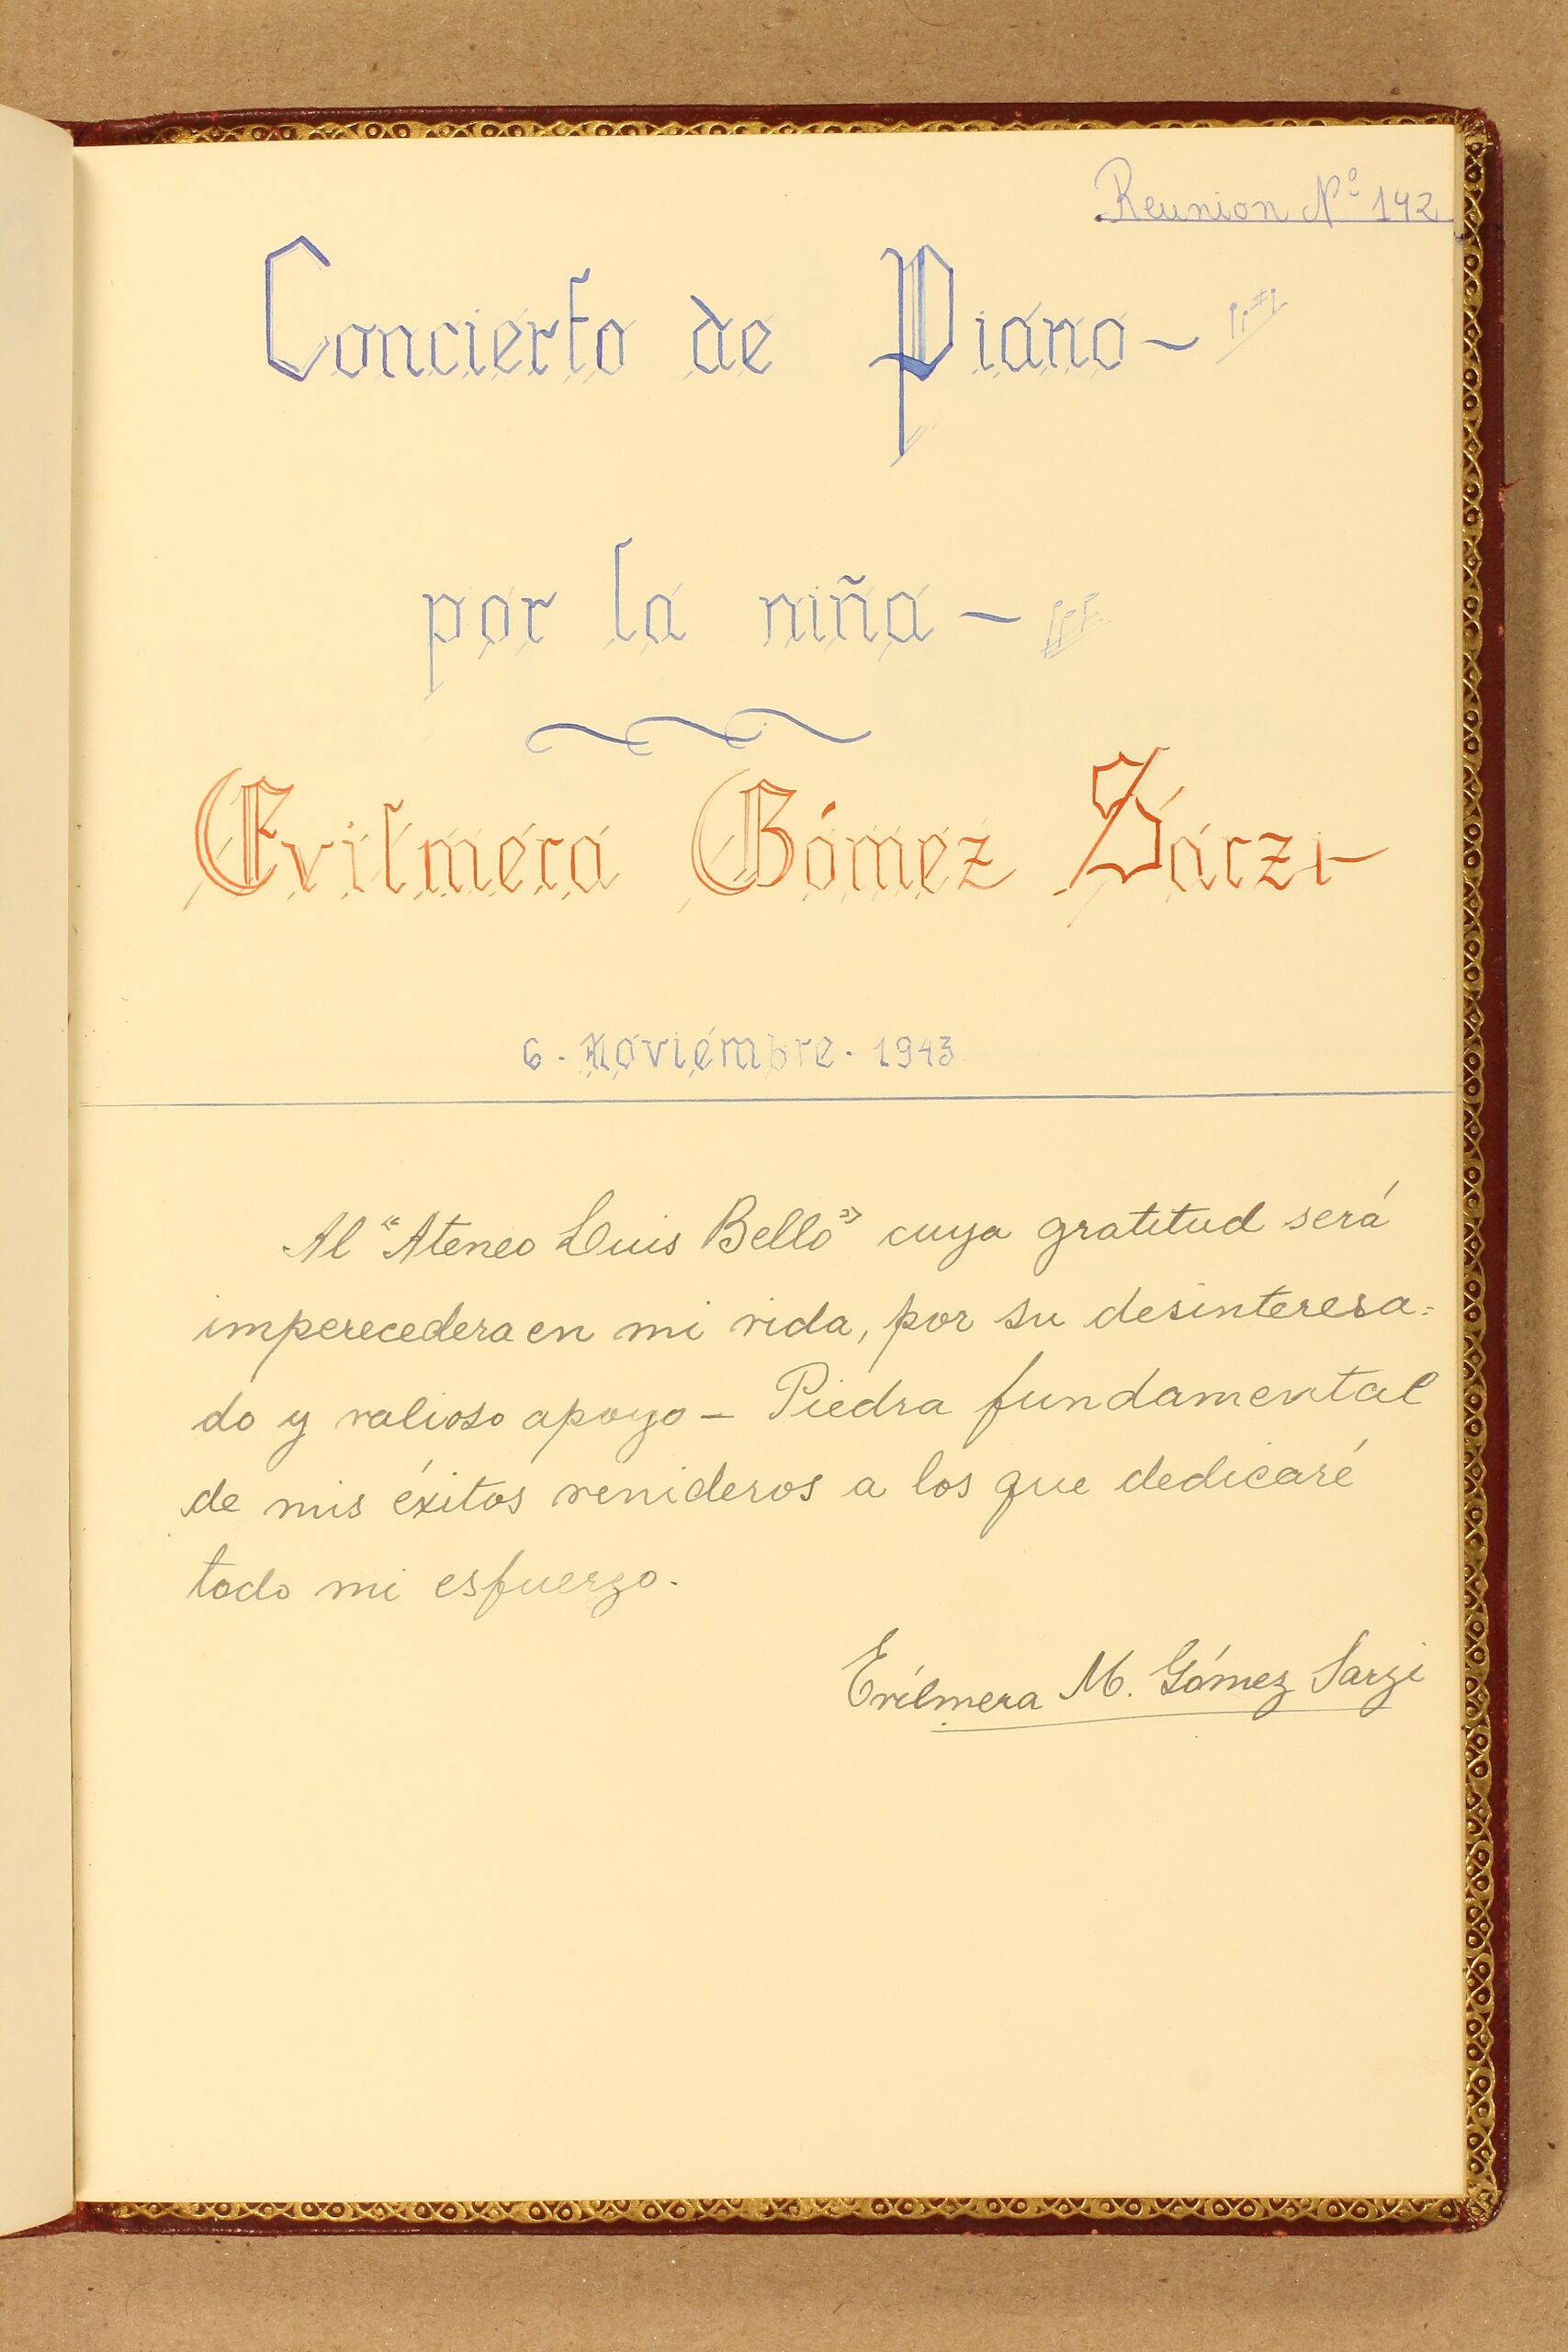 Reunion Nº 142
Concierto de Piano-
por la niña -
Evilmera Gómez Sarzi-
6 - Noviembre - 1943
Al "Ateneo Luis Bello" cuya gratitud será
imperecedera en mi vida, por su desinteresa=
do y valioso apoyo - Piedra fundamental
de mis éxitos venideros a los que dedicaré
todo mi esfuerzo.
Evilmera M. Gómez Sarzi